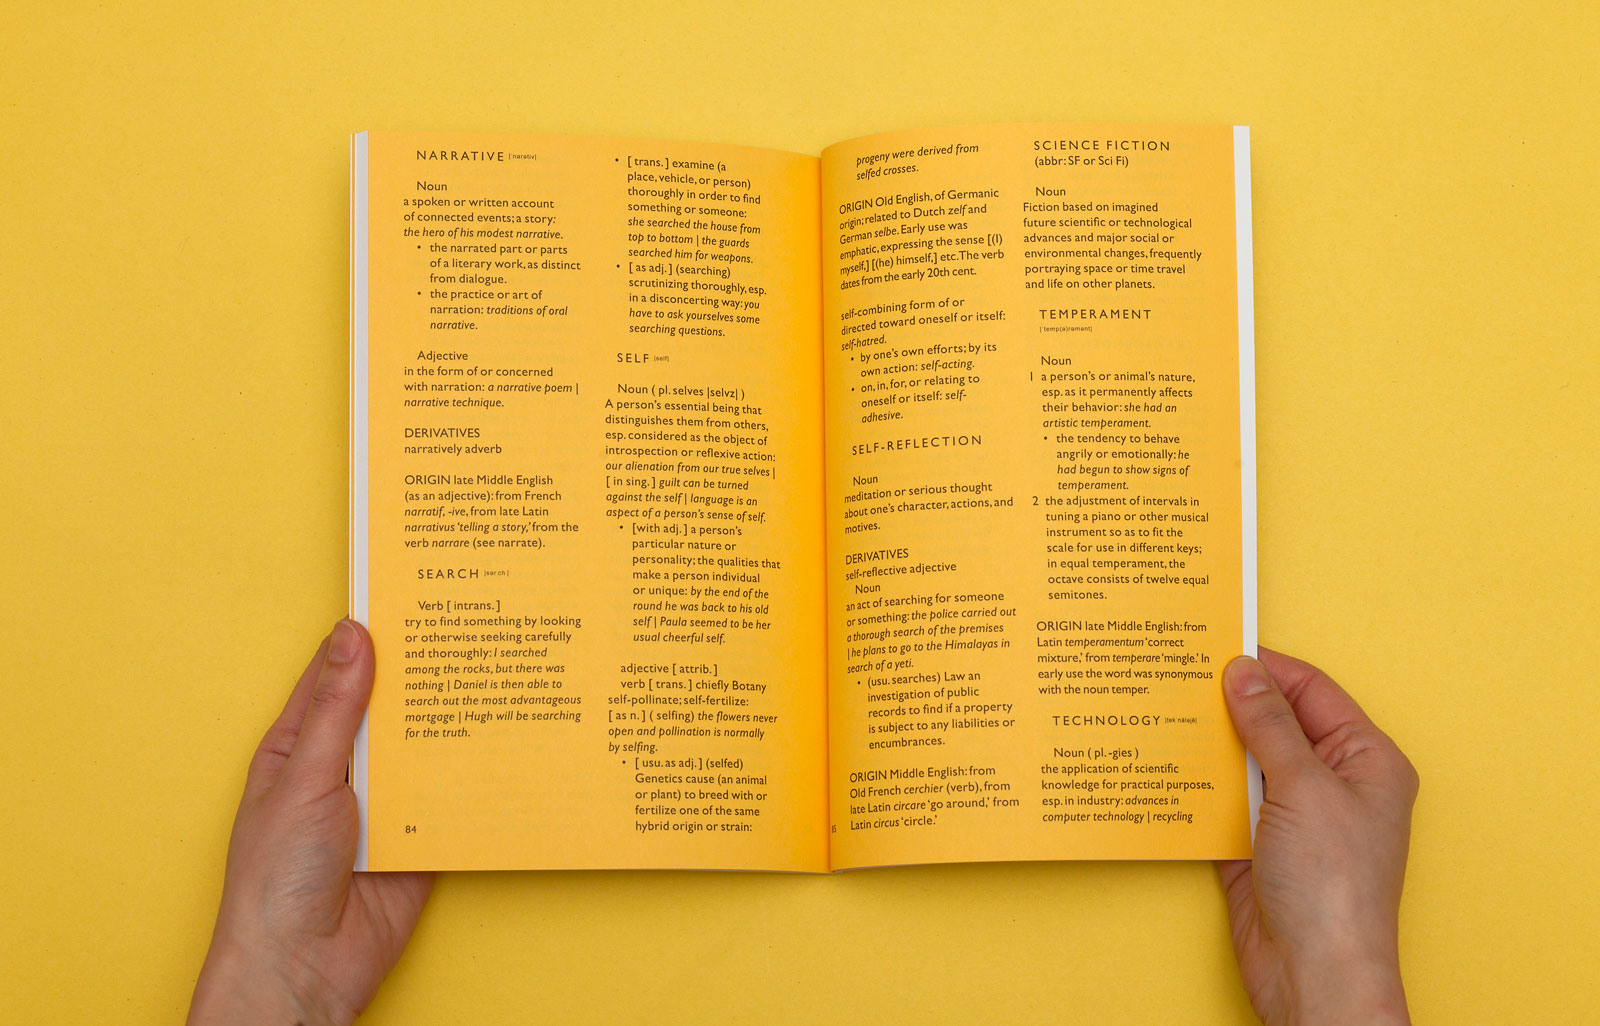 NARRATIVE [ˈnarətiv]
Noun
a spoken or written account
of connected events; a story:
the hero of his modest narrative.
• the narrated part or parts
of a literary work, as distinct
from dialogue.
• the practice or art of
narration: traditions of oral
narrative.
Adjective
in the form of or concerned
with narration: a narrative poem |
narrative technique.
DERIVATIVES
narratively adverb
ORIGIN late Middle English
(as an adjective): from French
narratif, -ive, from late Latin
narrativus ‘telling a story,’ from the
verb narrare (see narrate).
SEARCH |sərch|
Verb [ intrans. ]
try to find something by looking
or otherwise seeking carefully
and thoroughly: I searched
among the rocks, but there was
nothing | Daniel is then able to
search out the most advantageous
mortgage | Hugh will be searching
for the truth.
84
• [ trans. ] examine (a
place, vehicle, or person)
thoroughly in order to find
something or someone:
she searched the house from
top to bottom | the guards
searched him for weapons.
• [ as adj. ] (searching)
scrutinizing thoroughly, esp.
in a disconcerting way: you
have to ask yourselves some
searching questions.
SELF |self|
Noun ( pl. selves |selvz| )
A person’s essential being that
distinguishes them from others,
esp. considered as the object of
introspection or reflexive action:
our alienation from our true selves |
[ in sing. ] guilt can be turned
against the self | language is an
aspect of a person’s sense of self.
• [with adj. ] a person’s
particular nature or
personality; the qualities that
make a person individual
or unique: by the end of the
round he was back to his old
self | Paula seemed to be her
usual cheerful self.
adjective [ attrib. ]
verb [ trans. ] chiefly Botany
self-pollinate; self-fertilize:
[ as n. ] ( selfing) the flowers never
open and pollination is normally
by selfing.
• [ usu. as adj. ] (selfed)
Genetics cause (an animal
or plant) to breed with or
fertilize one of the same
hybrid origin or strain:
progeny were derived from
selfed crosses.
ORIGIN Old English, of Germanic
origin; related to Dutch zelf and
German selbe. Early use was
emphatic, expressing the sense [(I)
myself,] [(he) himself,] etc. The verb
dates from the early 20th cent.
self-combining form of or
directed toward oneself or itself:
self-hatred.
• by one’s own efforts; by its
own action: self-acting.
• on, in, for, or relating to
oneself or itself: self-
adhesive.
SELF-REFLECTION
Noun
meditation or serious thought
about one’s character, actions, and
motives.
DERIVATIVES
self-reflective adjective
Noun
an act of searching for someone
or something: the police carried out
a thorough search of the premises
| he plans to go to the Himalayas in
search of a yeti.
• (usu. searches) Law an
investigation of public
records to find if a property
is subject to any liabilities or
encumbrances.
ORIGIN Middle English: from
Old French cerchier (verb), from
late Latin circare ‘go around,’ from
Latin circus ‘circle.’
85
SCIENCE FICTION
(abbr: SF or Sci Fi)
Noun
Fiction based on imagined
future scientific or technological
advances and major social or
environmental changes, frequently
portraying space or time travel
and life on other planets.
TEMPERAMENT
[ˈtemp(ə)rəmənt]
Noun
1 a person’s or animal’s nature,
esp. as it permanently affects
their behavior: she had an
artistic temperament.
• the tendency to behave
angrily or emotionally: he
had begun to show signs of
temperament.
2 the adjustment of intervals in
tuning a piano or other musical
instrument so as to fit the
scale for use in different keys;
in equal temperament, the
octave consists of twelve equal
semitones.
ORIGIN late Middle English: from
Latin temperamentum ‘correct
mixture,’ from temperare ‘mingle.’ In
early use the word was synonymous
with the noun temper.
TECHNOLOGY |tekˈnäləjē|
Noun ( pl. -gies )
the application of scientific
knowledge for practical purposes,
esp. in industry: advances in
computer technology | recycling